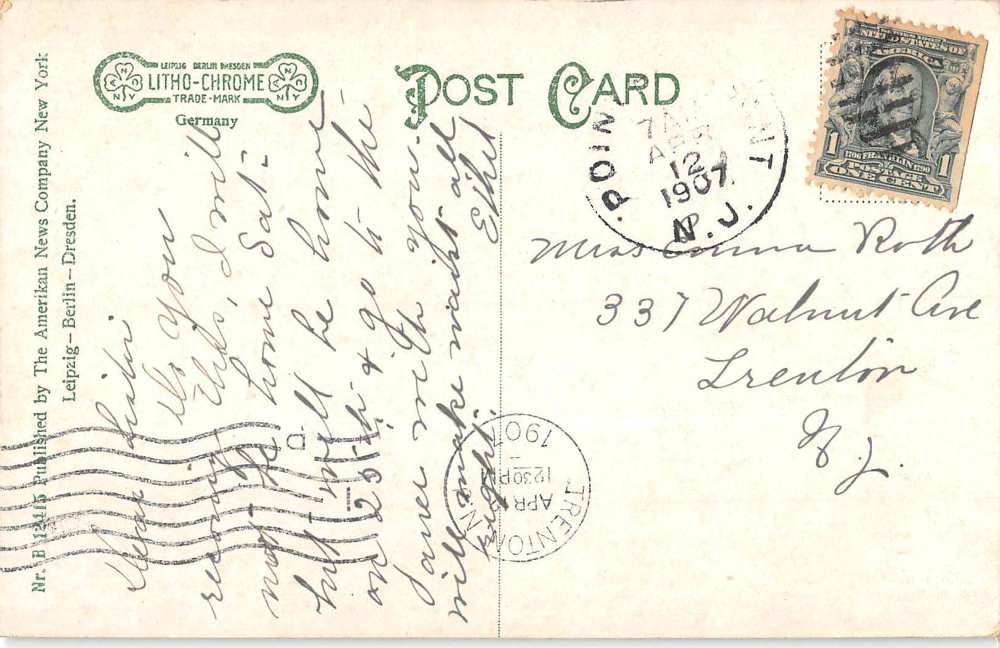 Nr. B 12415 Published by The Amerikan News Company New York
Leipzig – Berlin – Dresden.
LEIPZIG BERLIN DRESDEN
LITHO-CHROME
TRADE-MARK
Germany
N
N
N Y
N
N
N Y
POST CARD
POIN
NT
7 A
APR
12
1907
N.J.
UNITED STATES OF
AMERICA
1
1706 FRANKLIN 1790
1
POSTAGE
ONE CENT
Miss Emma Roth
337 Walnut Ave
Trenton
N. J.
Dear Sister
you
this, I will
not be home Sat-
but will be home
on 25th & go to the
with you.
will make
right.
Ethel
D
TRENTON, N.J.
APR 12
1230 PM
1907